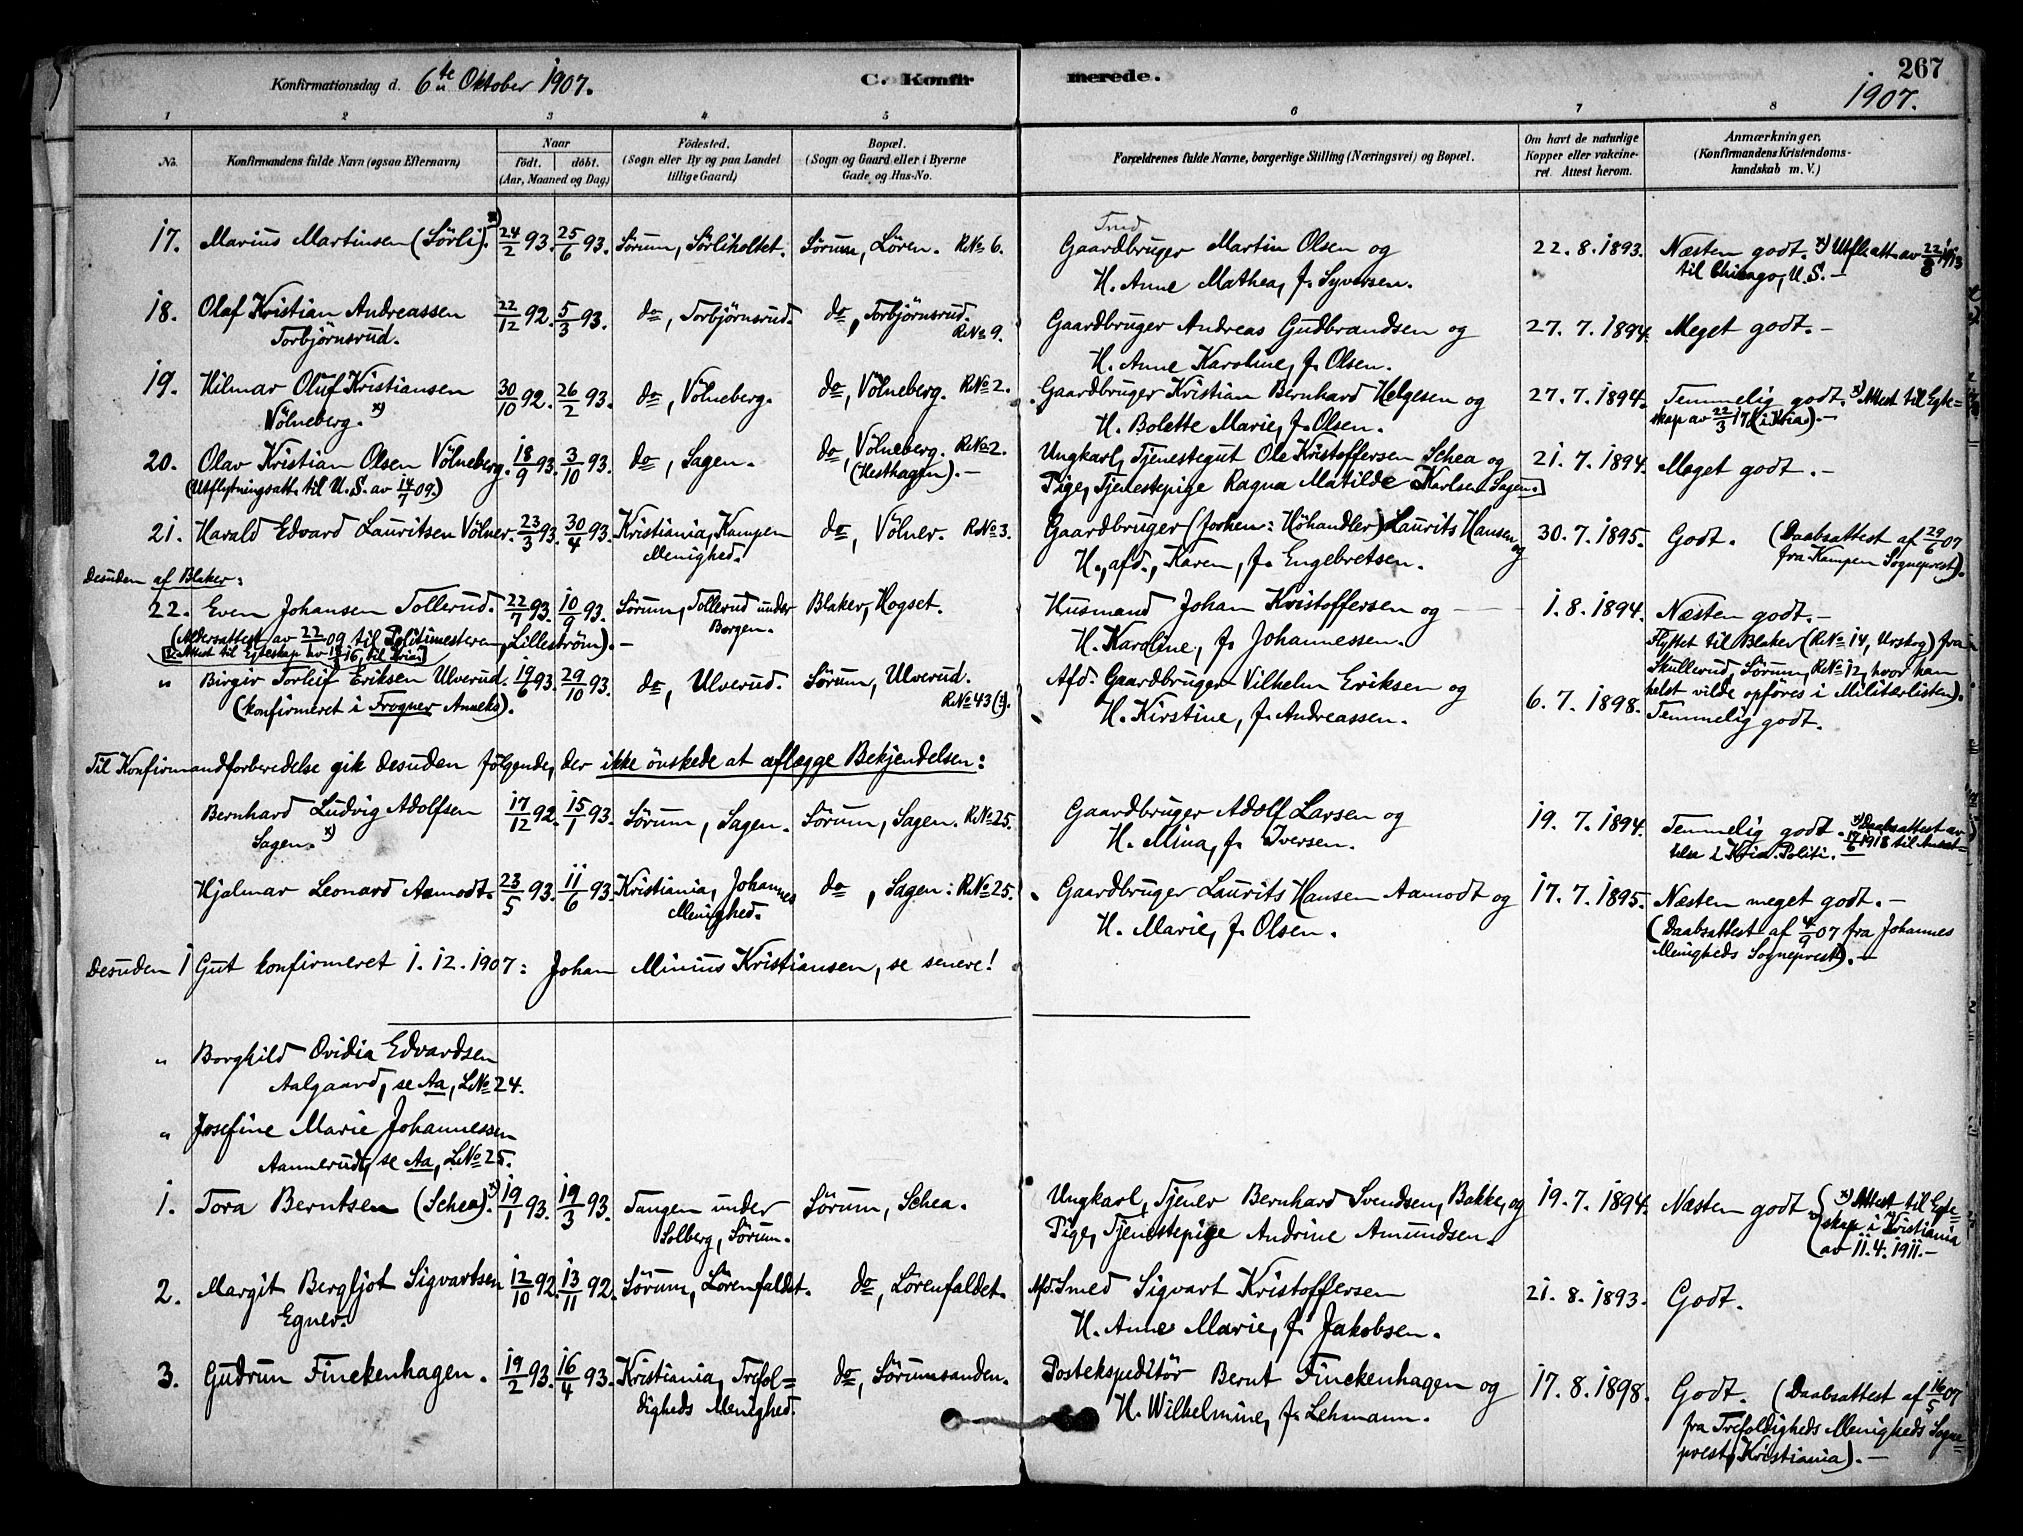 Konfirmationsdag d. 6te Oktober 1907.
C. Konfirmerede.
267
1907.
1 2 3 4 5 6 7 8
No. Konfirmandens fulde Navn (ogsaa Efternavn)
Naar
født. døbt.
(Aar, Maaned og Dag)
Fødested.
(Sogn eller By og paa Landet
tillige Gaard)
Bopæl.
(Sogn og Gaard eller i Byerne
Gade og Hus-No.
Forældrenes fulde Navne, borgerlige Stilling (Næringsvei) og Bopæl.
Om havt de naturlige
Kopper eller vakcine-
ret. Attest herom.
Anmærkninger.
(Konfirmandens Kristendoms-
kundskab m. V.)
17. Marius Martinsen (Sörli). x) 24/2 93. 25/6 93. Sörum, Sörliholtet. Sörum, Lören. RNo 6. Gaardbruger Martin Olsen og 22.8.1893. Næsten godt. x) Utfl.att. av 22/8 1913
H. Anne Mathea, f. Syversen. til Chicago, U.S.-
18. Olaf Kristian Andreassen 22/12 92. 5/3 93. do, Torbjörnsrud. do, Torbjörnsrud. Gaardbruger Andreas Gudbrandsen og 27.7.1894. Meget godt.-
Torbjörnsrud. RNo 9. H. Anne Karoline, f. Olsen.
19. Hilmar Oluf Kristiansen 30/10 92. 26/2 93. do, Völneberg. do, Völneberg. RNo 2. Gaardbruger Kristian Bernhard Helgesen og 27.7.1894. Temmelig godt. x) Attest til Egte=
Völneberg. x) H. Bolette Marie, f. Olsen. skap av 22/3 17 (i Kria).-
20. Olav Kristian Olsen Völneberg. 18/9 93. 3/10 93. do, Sagen. do, Völneberg. RNo 2. Ungkarl, Tjenestegut Ole Kristoffersen Schea og 21.7.1894. Meget godt.-
(Utflytningsatt. til U.S. av 14/7 09.) (Hesthagen).- Pige, Tjenestepige Ragna Matilde Karlsen Sagen.
21. Harald Edvard Lauritsen Völner. 23/3 93. 30/4 93. Kristiania, Kampen do, Völner. RNo 3. Gaardbruger (forhen: Höhandler) Laurits Hansen og 30.7.1895. Godt. (Daabsattest af 29/6 07
Menighed. H., afd., Karen, f. Engebretsen. fra Kampen Sogneprest).
Desuden af Blaker:
22. Even Johansen Tollerud. 22/7 93. 10/9 93. Sörum, Tollerud under Blaker, Hogset. Husmand Johan Kristoffersen og 1.8.1894. Næsten godt.-
Borgen. H. Karoline, f. Johannessen.
(Aldersattest av 22/ 09 til Politimesteren, Lilleström).-
Attest til Egteskap av 16, til Kria
Flyttet til Blaker (RNo 14, Urskog) fra
Skullerud, Sörum, RNo 12, hvor han
helst vilde opföres i Militærlisten).
" Birger Torleif Eriksen Ulverud. 19/6 93. 29/10 93. do, Ulverud. Sörum, Ulverud. Afd. Gaardbruger Vilhelm Eriksen og 6.7.1898. Temmelig godt.
(konfirmeret i Frogner Anneks). RNo 43 H. Kirstine, f. Andreassen.
Til Konfirmandforberedelse gik desuden fölgende, der ikke önskede at aflægge Bekjendelsen:
Bernhard Ludvig Adolfsen 17/12 92. 15/1 93. Sörum, Sagen. Sörum, Sagen. RNo 25. Gaardbruger Adolf Larsen og 19.7.1894. Temmelig godt. x) Daabsattest av
Sagen. x) H. Mina, f. Iversen. 17/6 1918 til Ansæt-
telse i Kria. Politi.-
Hjalmar Leonard Aamodt. 23/5 93. 11/6 93. Kristiania, Johannes do, Sagen: RNo 25. Gaardbruger Laurits Hansen Aamodt og 17.7.1895. Næsten meget godt.-
Menighed. H. Marie, f. Olsen. (Daabsattest af 4/9 07 fra Johannes
Menigheds Sogneprest).-
Desuden 1 Gut konfirmeret 1.12.1907: Johan Minius Kristiansen, se senere!
" Borghild Ovidia Edvardsen
Aalgaard, se Aa, LNo 24.
" Josefine Marie Johannessen
Aannerud, se Aa, LNo 25.
1. Tora Berntsen (Schea). x) 19/1 93. 19/3 93. Tangen under Sörum, Schea. Ungkarl, Tjener Bernhard Svendsen, Bakke, og 19.7.1894. Næsten godt. (x) Attest til Egte=
Solberg, Sörum. Pige, Tjenestepige Andrine Amundsen. skap i Kristiania
av 11.4.1911.-
2. Margit Bergljot Sigvartsen 12/10 92. 13/11 92. Sörum, Lörenfaldet. do, Lörenfaldet. Afd. Smed Sigvart Kristoffersen 21.8.1893. Godt.
Egner. H. Anne Marie, f. Jakobsen.
3. Gudrun Finckenhagen. 19/2 93. 16/4 93. Kristiania, Trefol= do, Sörumsanden. Postekspeditör Bernt Finckenhagen og 17.8.1898. Godt. (Daabsattest af 16/5 07
digheds Menighed. H. Wilhelmine, f. Lehmann. fra Trefoldigheds Menigheds Sogne-
prest, Kristiania).-